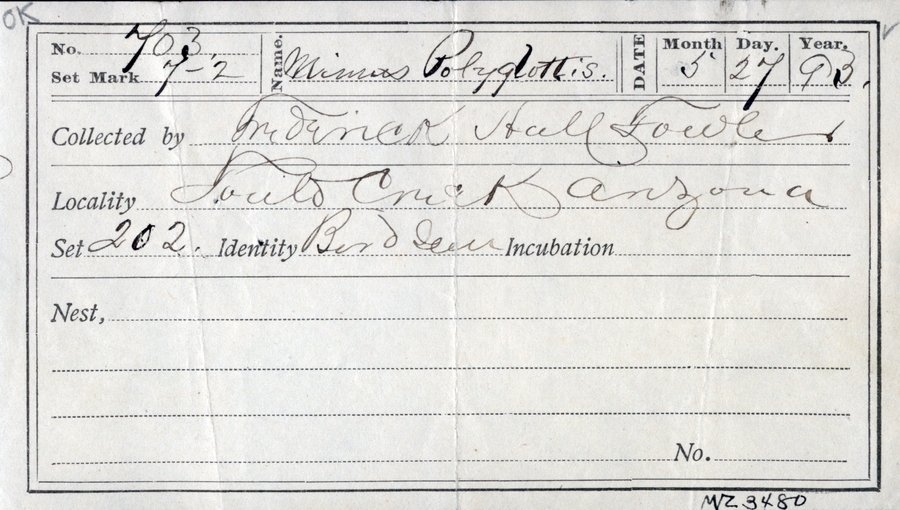 OK
No. 703. Name. Mimus Polyglottis. DATE Month Day. Year.
Set Mark 7-2 5 27 93.
Collected by Frederick Hall Fowler
Locality Creek Arizona
Set 202. Identity Bird Seen Incubation
Nest,
No.
MVZ 3480